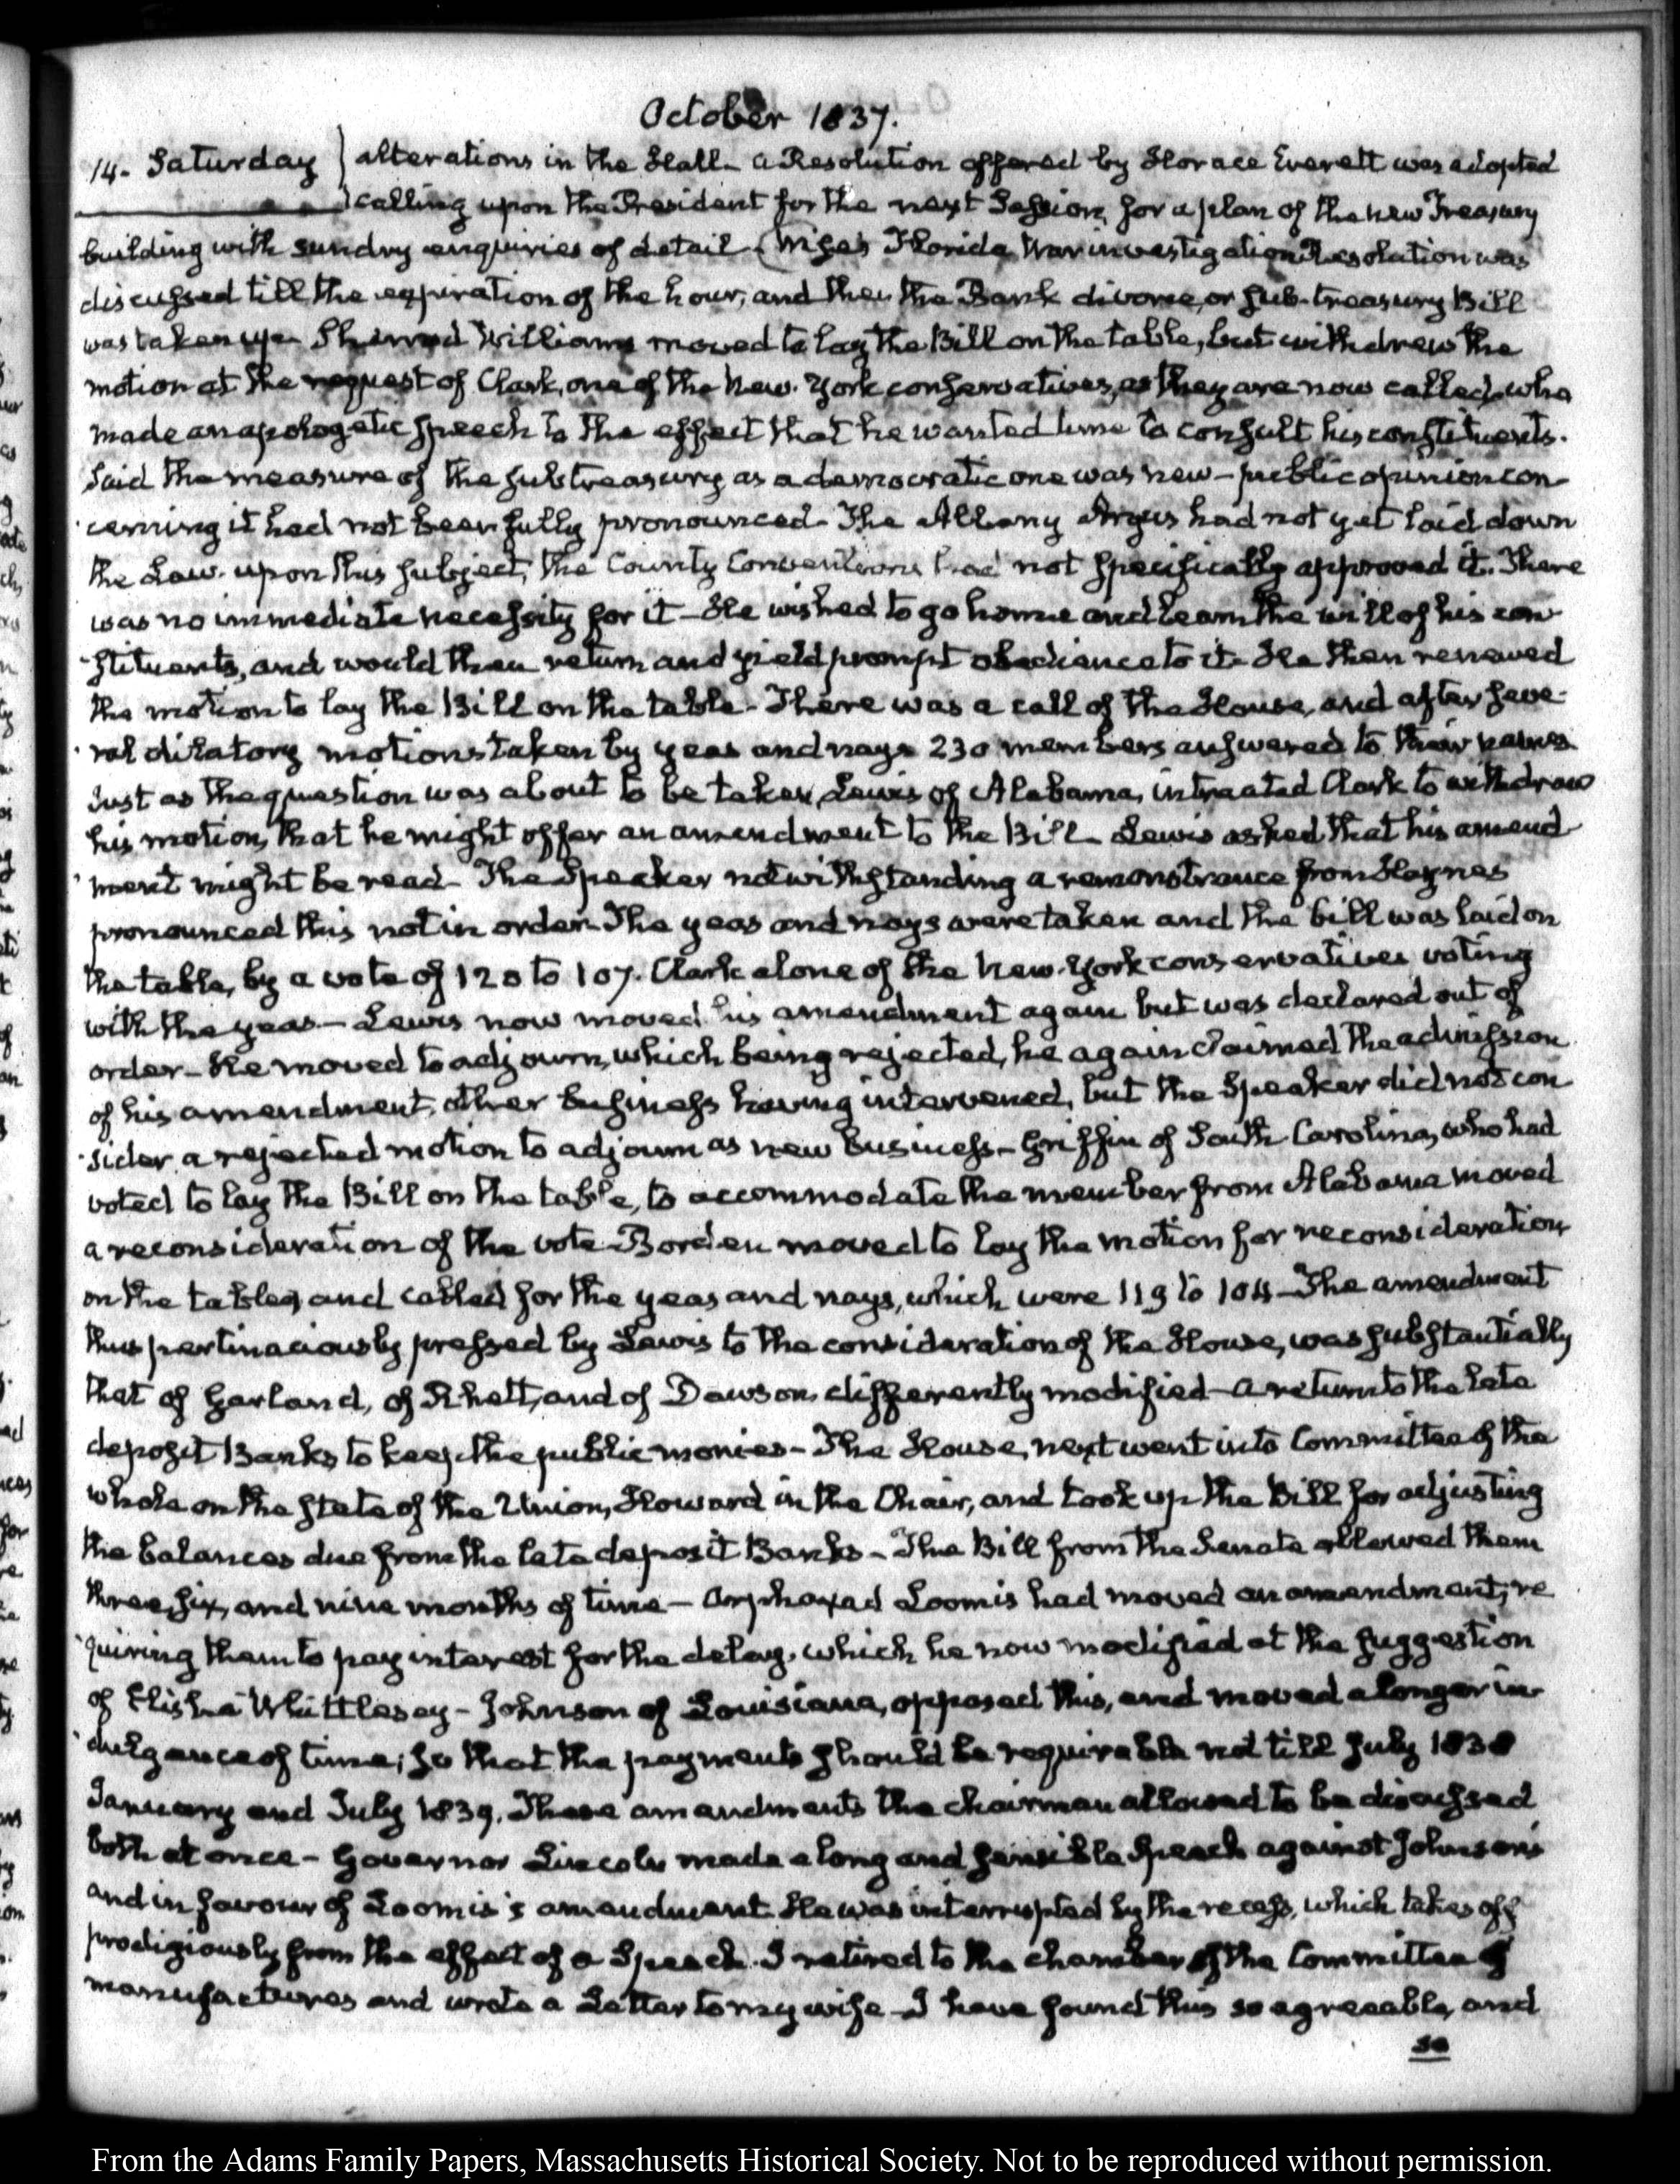 October 1837.
14. Saturday } alterations in the Hall. A Resolution offered by Horace Everett was adopted
calling upon the President for the next Session, for a plan of the new Treasury
building with sundry enquiries of detail. Wise's Florida War investigation Resolution was
discussed till the expiration of the hour, and then the Bank divorce, or sub-treasury Bill
was taken up. Sherrod Williams moved to lay the Bill on the table, but withdrew the
motion at the request of Clark, one of the New-York conservatives, as they are now called, who
made an apologetic speech to the effect that he wanted time to consult his constituents.
Said the measure of the subtreasury as a democratic one was new - public opinion con
cerning it had not been fully pronounced. The Albany Argus had not yet laid down
the Law upon this subject, the County Conventions had not specifically approved it. There
was no immediate necessity for it - He wished to go home and learn the will of his con
stituents, and would then return and yield prompt obedience to it. He then renewed
the motion to lay the Bill on the table - There was a call of the House, and after seve
ral dilatory motions taken by yeas and nays 230 members answered to their names
Just as the question was about to be taken, Lewis of Alabama, intreated Clark to withdraw
his motion, that he might offer an amendment to the Bill. Lewis asked that his amend
ment might be read. The Speaker notwithstanding a remonstrance from Haynes
pronounced this not in order. The yeas and nays were taken and the bill was laid on
the table, by a vote of 120 to 107. Clark alone of the New-York conservatives voting
with the yeas - Lewis now moved his amendment again but was declared out of
order - He moved to adjourn, which being rejected, he again claimed the admission
of his amendment, other business having intervened, but the Speaker did not con
sider a rejected motion to adjourn as new business - Griffin of South Carolina, who had
voted to lay the Bill on the table, to accommodate the member from Alabama moved
a reconsideration of the vote. Borden moved to lay the motion for reconsideration
on the table, and called for the yeas and nays, which were 119 to 104 - The amendment
thus pertinaciously pressed by Lewis to the consideration of the House, was substantially
that of Garland, of Rhett, and of Dawson, differently modified - a return to the late
deposit Banks to keep the public monies - The House, next went into Committee of the
whole on the State of the Union, Howard in the Chair, and took up the Bill for adjusting
the balances due from the late deposit Banks - The Bill from the Senate allowed them
three, six, and nine months of time - Arphaxad Loomis had moved an amendment, re
quiring them to pay interest for the delay, which he now modified at the suggestion
of Elisha Whittlesey - Johnson of Louisiana, opposed this, and moved a longer in
dulgence of time; so that the payments should be requirable not till July 1838
January and July 1839. These amendments the chairman allowed to be discussed
both at once - Governor Lincoln made a long and sensible speech against Johnson's
and in favour of Loomis's amendment. He was interrupted by the recess, which takes off
prodigiously from the effect of a Speech. I retired to the chamber of the Committee of
manufactures and wrote a Letter to my wife - I have found this so agreeable, and
so
From the Adams Family Papers, Massachusetts Historical Society. Not to be reproduced without permission.